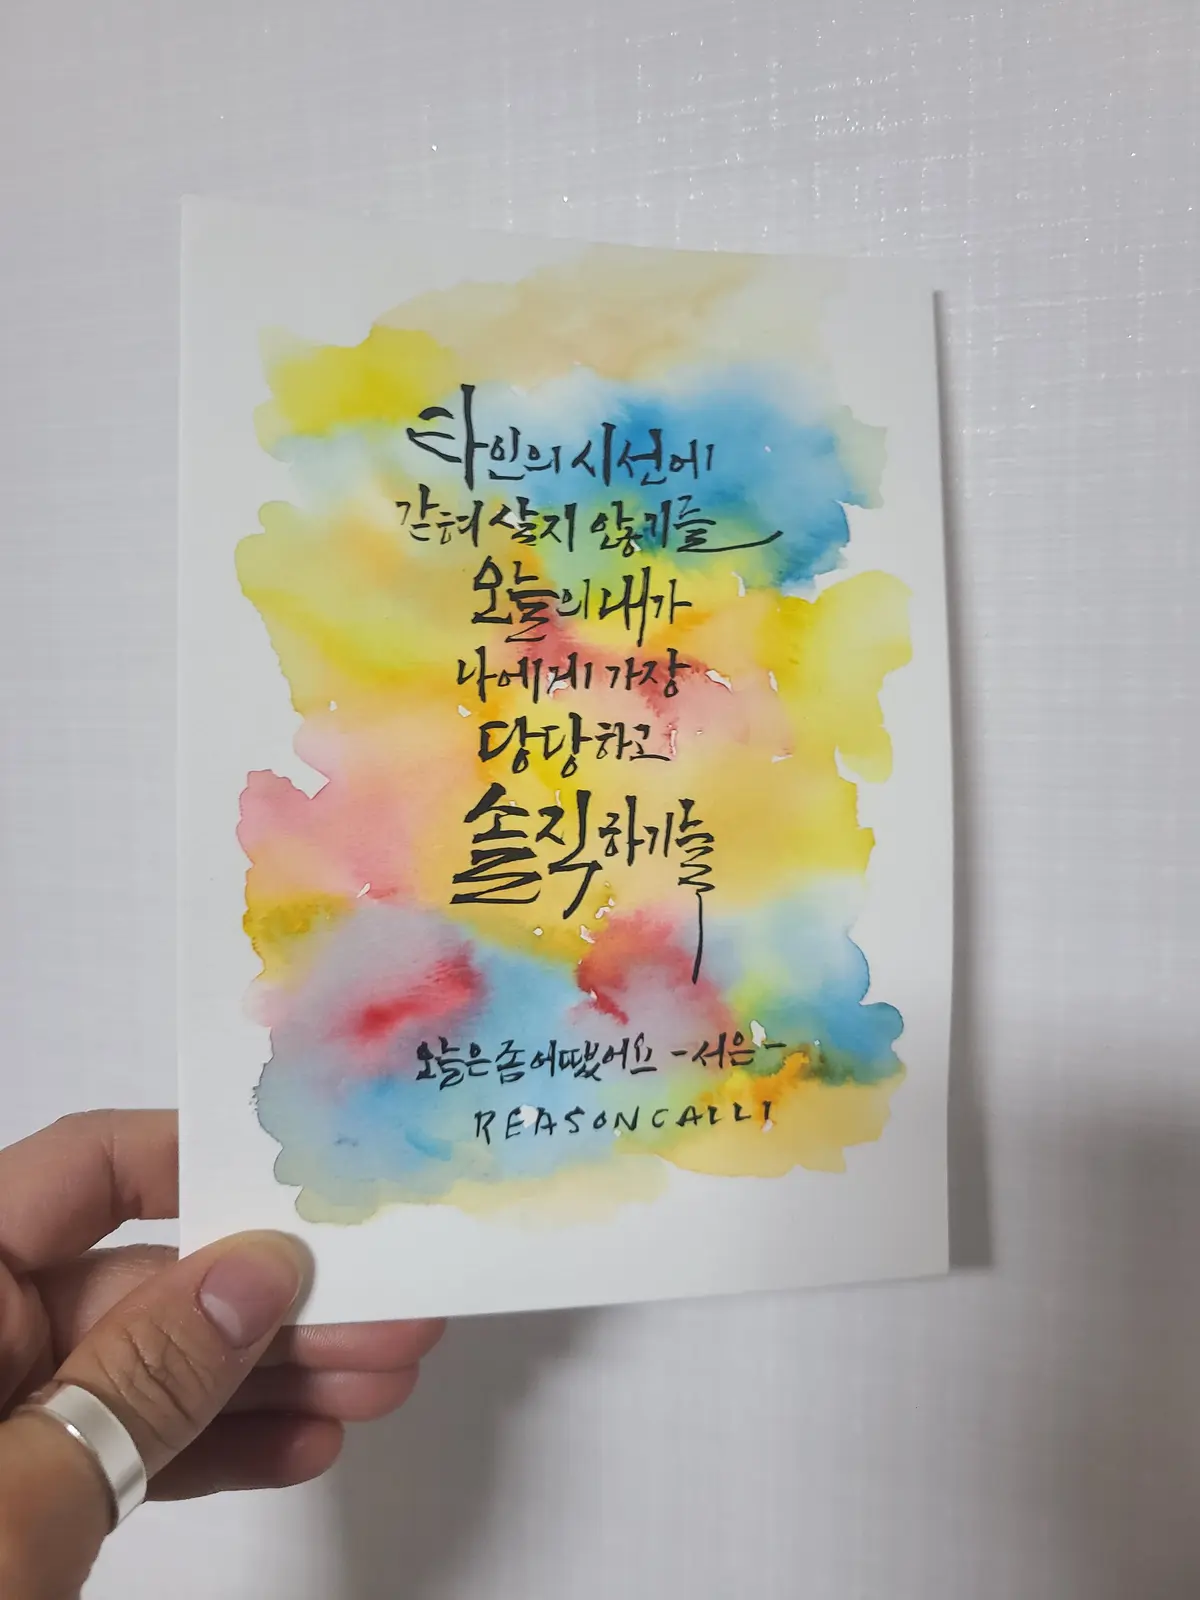 타인의 시선에
갇혀 살지 않기를
오늘의 내가
나에게 가장
당당하고
솔직하기를
오늘은 좀 어땠어요 -서은-
REASONCALLI